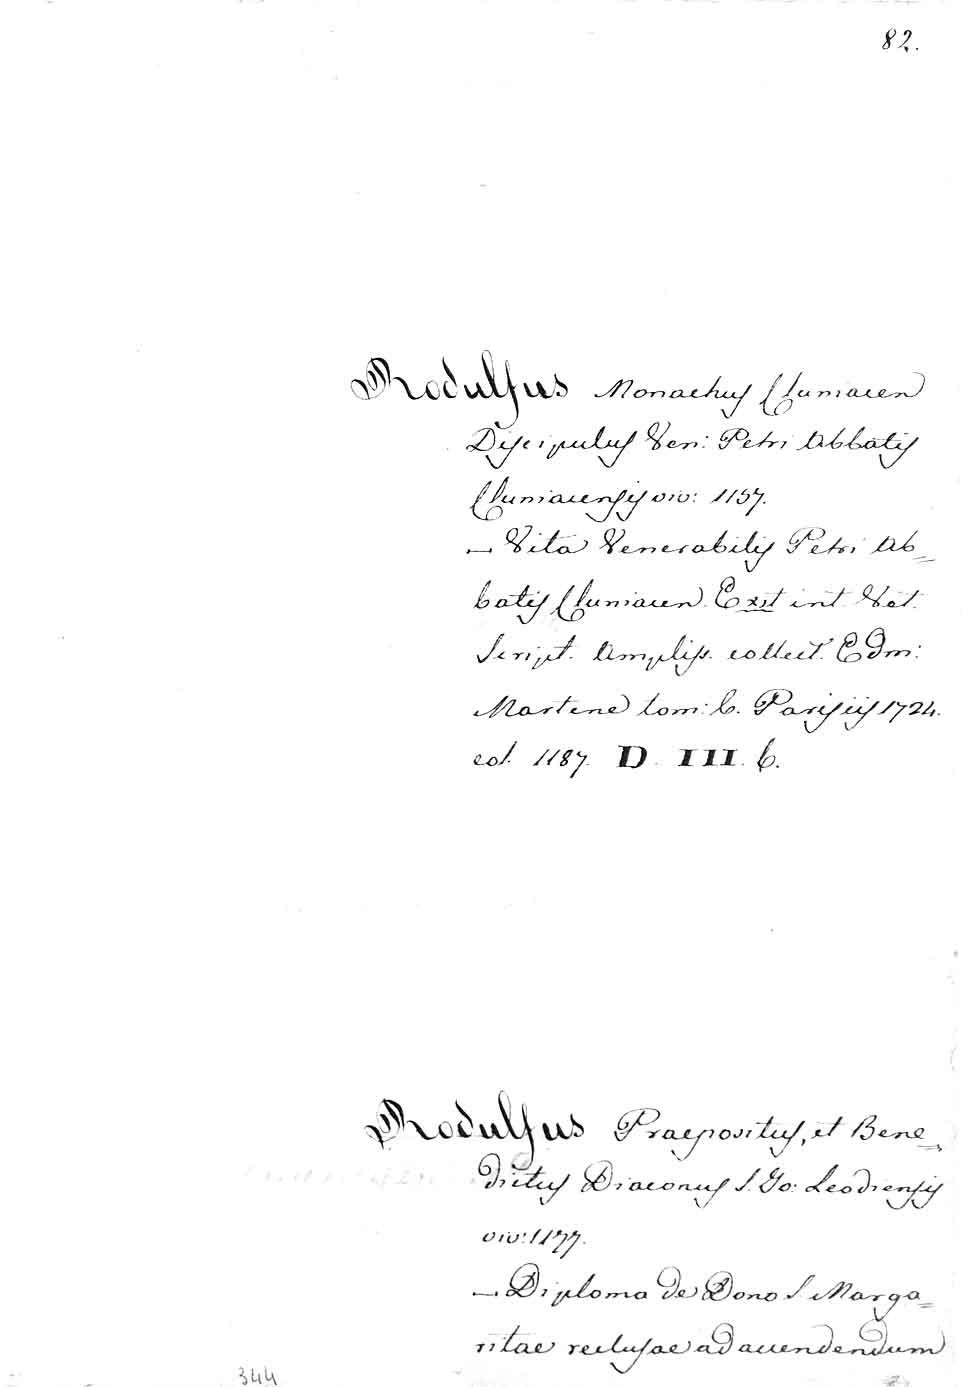 82.
Rodulfus Monachus Cluniacen
Discipulus Ven: Petri Abbatis
Cluniacensis viv: 1157.
— Vita Venerabilis Petri Ab=
batis Cluniacen. Exst int. Vet.
Script. Ampliss. collect. Edm:
Martene tom: 6. Parisiis 1724.
col. 1187. D. III. 6.
Rodulfus Praepositus, et Bene=
dictus Diaconus S. Jo: Leodiensis
viv: 1177.
— Diploma de Dono S. Marga=
ritae reclusae ad accendendum
344